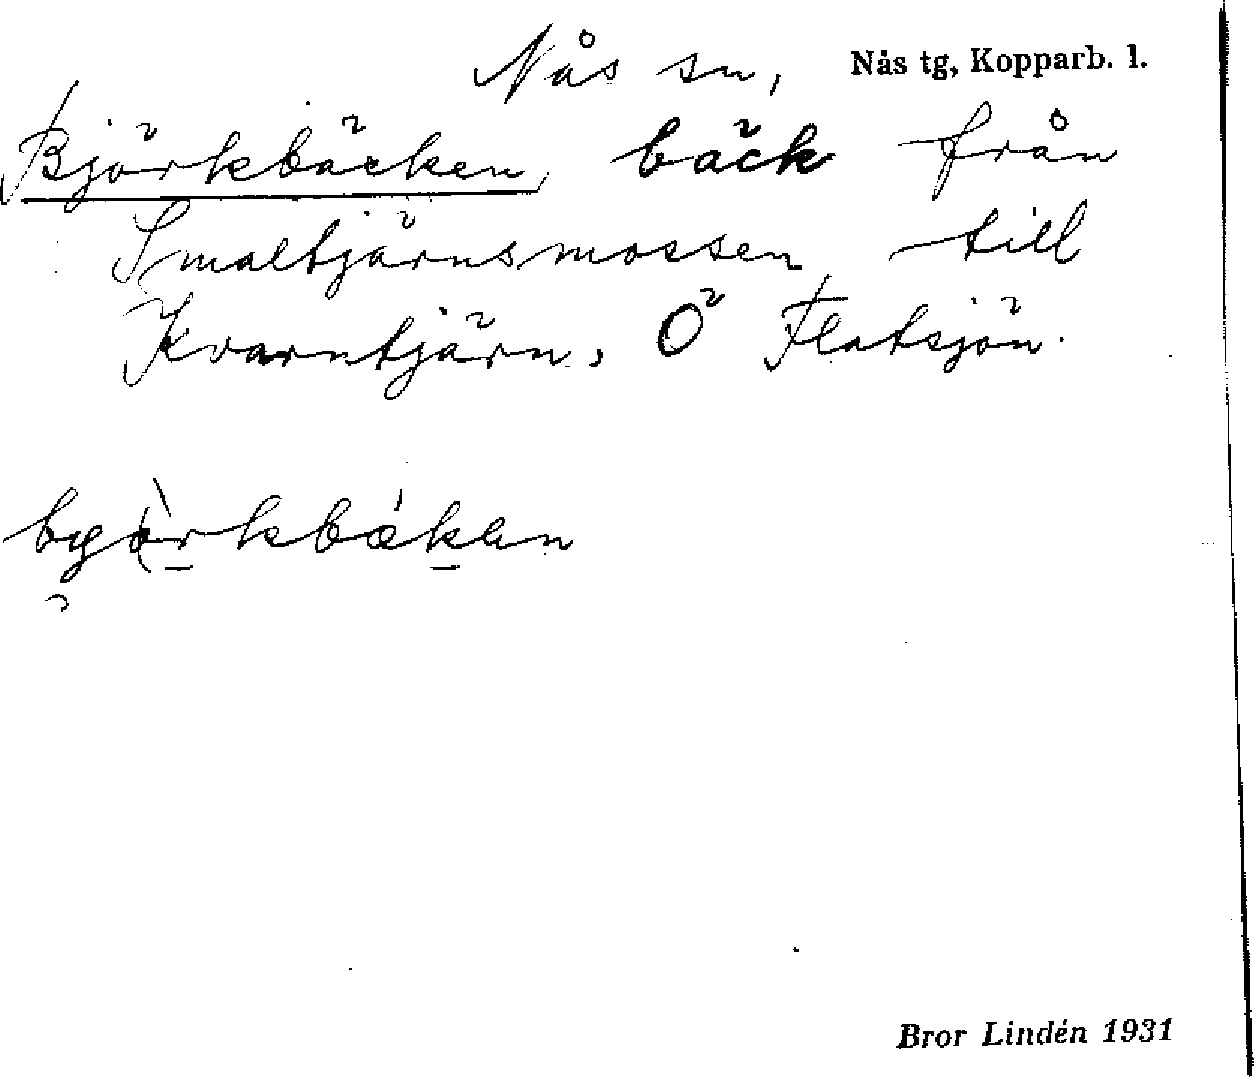 Nås sn, Nås tg, Kopparb. l.
Björkbäcken, bäck från
Smaltjärnsmossen till
Kvarntjärn, Ö Flatsjön.
Bror Lindén 1931